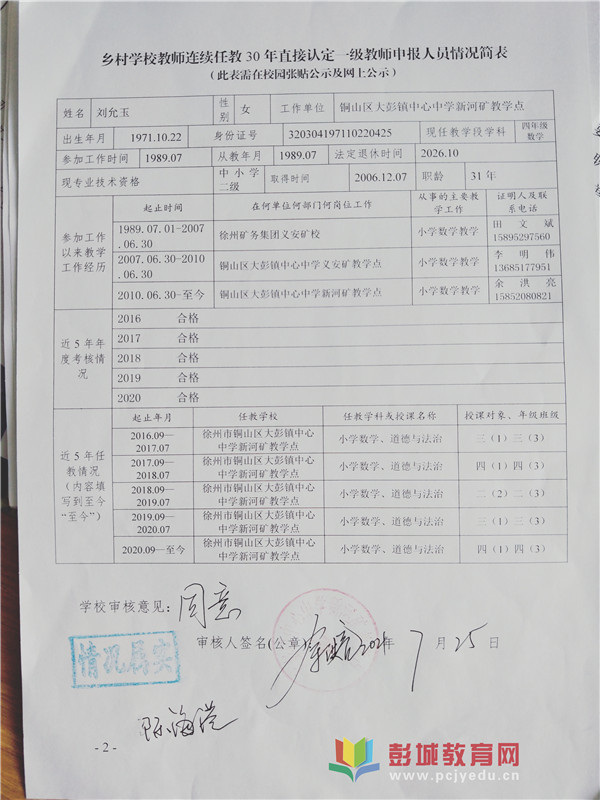 乡村学校教师连续任教 30 年直接认定一级教师申报人员情况简表
（此表需在校园张贴公示及网上公示）
姓名 刘允玉 性别 女 工作单位 铜山区大彭镇中心中学新河矿教学点
出生年月 1971.10.22 身份证号 320304197110220425 现任教学段学科 四年级数学
参加工作时间 1989.07 从教年月 1989.07 法定退休时间 2026.10
现专业技术资格 中小学二级 取得时间 2006.12.07 教龄 31 年
参加工作以来教学工作经历
起止时间 在何单位何部门何岗位工作 从事的主要教学工作 证明人及联系电话
1989.07.01-2007.06.30 徐州矿务集团义安矿校 小学数学教学 田文斌 15895297560
2007.06.30-2010.06.30 铜山区大彭镇中心中学义安矿教学点 小学数学教学 李明伟 13685177951
2010.06.30-至今 铜山区大彭镇中心中学新河矿教学点 小学数学教学 余洪亮 15852080821
近 5 年年度考核情况
2016 合格
2017 合格
2018 合格
2019 合格
2020 合格
近 5 年任教情况（内容填写到至今“至今”）
起止年月 任教学校 任教学科或授课名称 授课对象、年级班级
2016.09—2017.07 徐州市铜山区大彭镇中心中学新河矿教学点 小学数学、道德与法治 三（1）三（3）
2017.09—2018.07 徐州市铜山区大彭镇中心中学新河矿教学点 小学数学、道德与法治 四（1）四（3）
2018.09—2019.07 徐州市铜山区大彭镇中心中学新河矿教学点 小学数学、道德与法治 二（2）二（3）
2019.09—2020.07 徐州市铜山区大彭镇中心中学新河矿教学点 小学数学、道德与法治 三（1）三（3）
2020.09—至今 徐州市铜山区大彭镇中心中学新河矿教学点 小学数学、道德与法治 四（1）四（3）
学校审核意见：同意
审核人签名(公章) 2021年 7 月 25 日
情况属实
- 2 -
彭城教育网
www.pcjyedu.cn